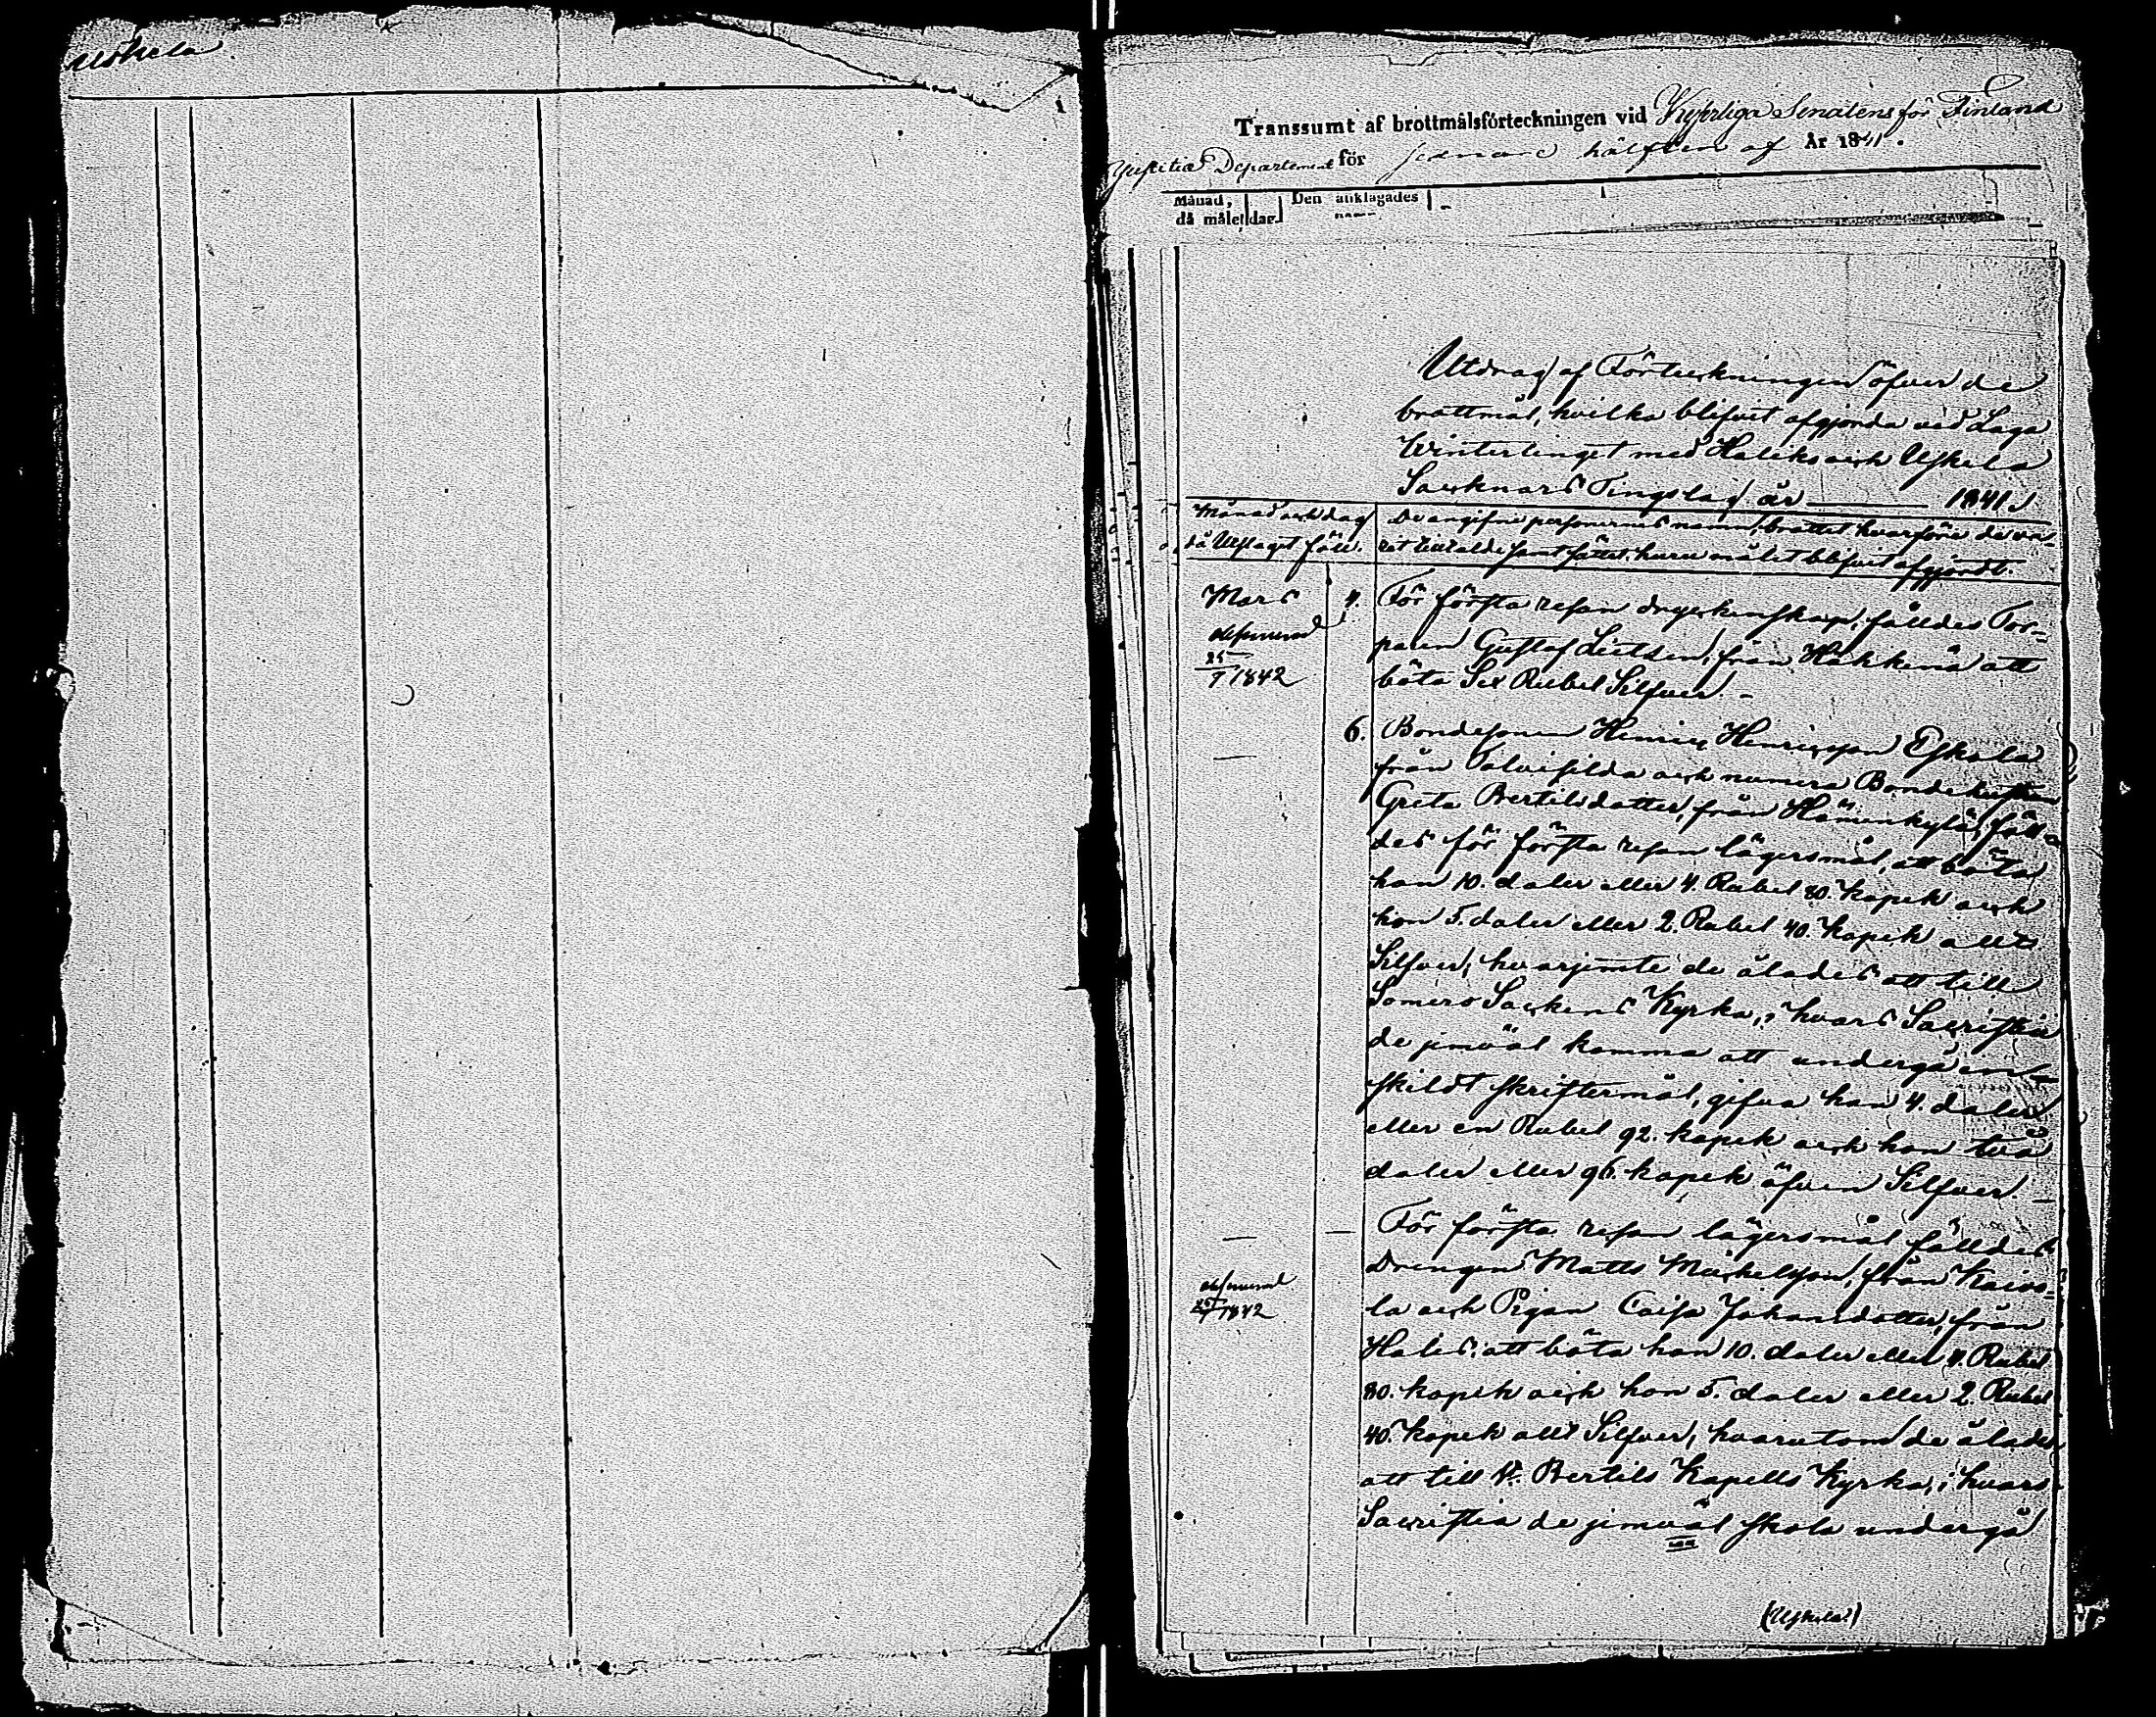 Uskela
Transsumt af brottmålsförteckningen vid Kejserliga Senatens för Finland
Justitiæ Departement för sednare hälften af År 1841.
Månad, Den anklagades
då målet dar. namn
Utdrag af Förteckningen öfver de
brottmål, hvilka blifvit afgjorda vid Laga
Wintertinget med Haliko och Uskela
Socknars Tingslag år 1841.
Månad och dag De angifne personernes namn, brottet hvarföre de va-
då Utslaget föll. rit tilltalde samt sättet, huru målet blifvit afgjordt.
Mars 4. För första resan dryckenskap, fälldes Tor-
paren Gustaf Lietsen, från Häkkenä att
25/7 1842 böta Sex Rubel Silfver. -
— 6. Bondesonen Henric Henricsson Eskola
från Talvisilda och numera Bondehustrun
Greta Bertilsdotter, från Hämenkylä, fäll-
des för första resan lägersmål, att böta
han 10. daler eller 4. Rubel 80. kopek och
hon 5. daler eller 2. Rubel 40. kopek allt
Silfver, hvarjemte de ålades att till
Somero Sockens Kyrka, i hvars Sacristia
de jemväl komma att undergå en-
skildt skriftermål, gifva han 4. daler
eller en Rubel 92. kopek och hon två
daler eller 96. kopek äfven Silfver. -
— — För första resan lägersmål fälldes
Drengen Matts Michelsson, från Kaivo-
la och Pigan Caisa Johansdotter, från
25/7 1842
Halis, att böta han 10. daler eller 4. Rubel
80. kopek och hon 5. daler eller 2. Rubel
40. kopek allt Silfver, hvarutom de ålades
att till St. Bertils Kapells Kyrka, i hvars
Sacristia de jemväl skola undergå
(Uskela)